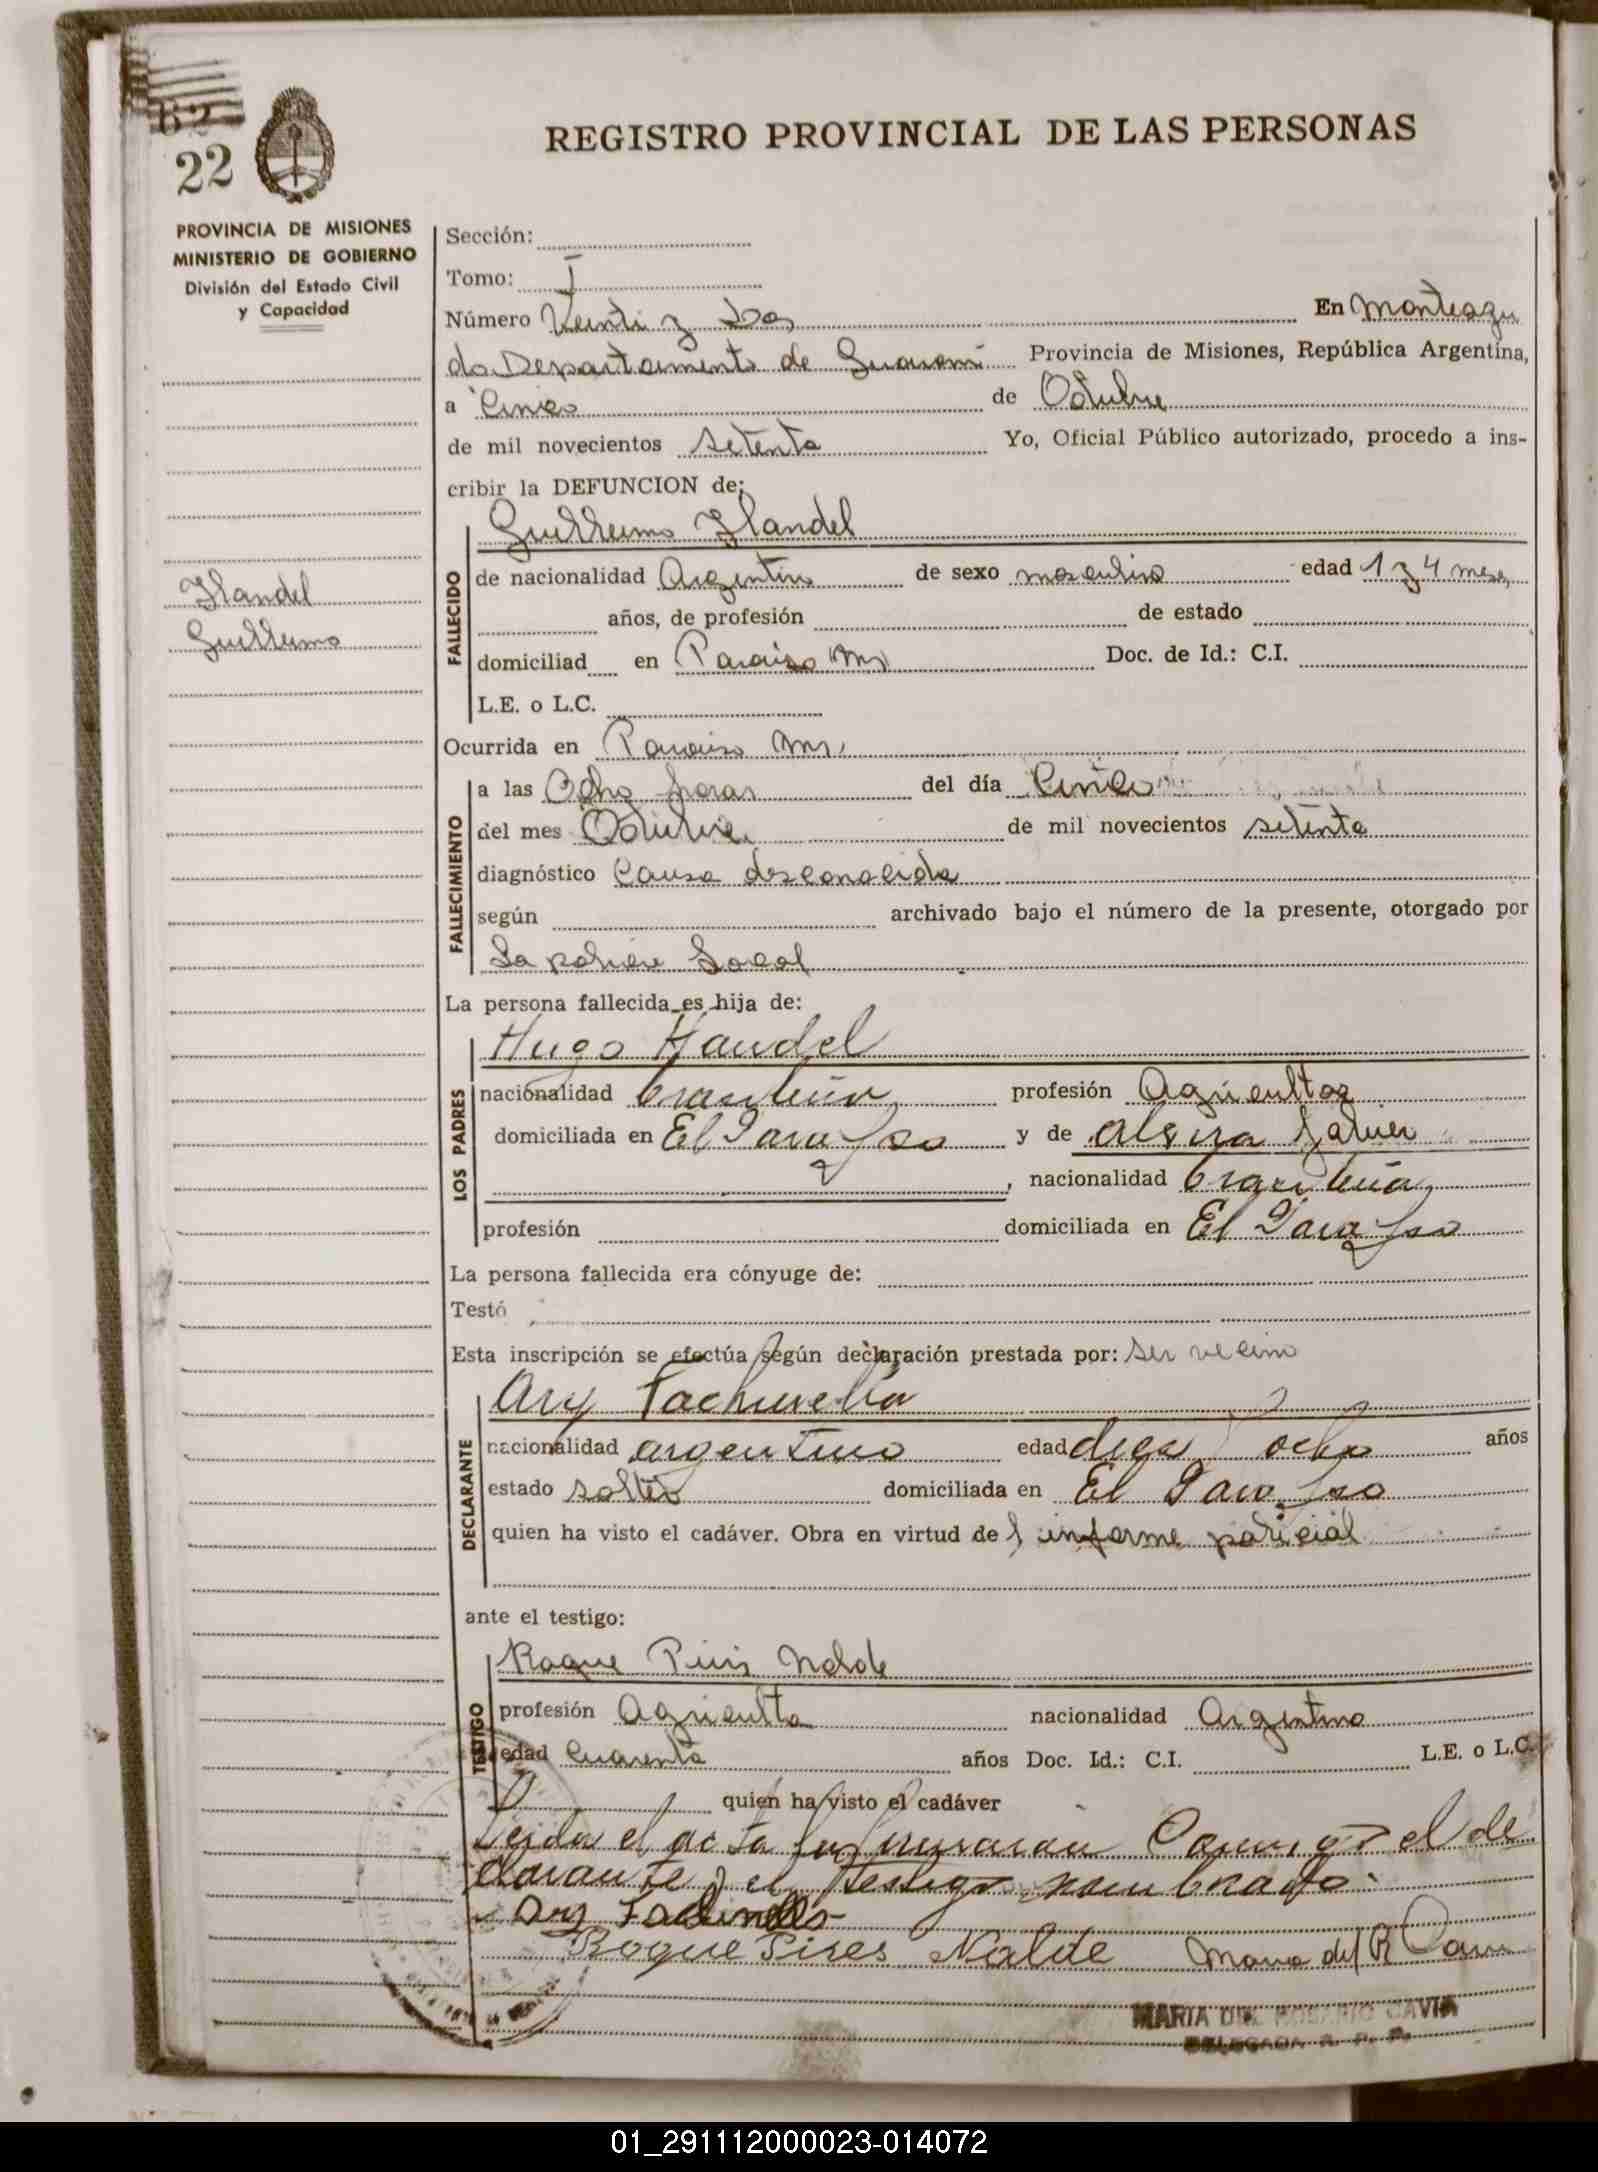 62
22
REGISTRO PROVINCIAL DE LAS PERSONAS
PROVINCIA DE MISIONES
MINISTERIO DE GOBIERNO
División del Estado Civil
y Capacidad
Sección:
Tomo: I
Número Veinti y Dos En Monteagu
do Departamento de Guarani Provincia de Misiones, República Argentina,
a Cinco de Octubre
de mil novecientos setenta Yo, Oficial Público autorizado, procedo a ins-
cribir la DEFUNCION de:
Guillermo Handel
Handel
Guillermo
FALLECIDO
de nacionalidad Argentino de sexo masculino edad 1 y 4 meses
años, de profesión de estado
domiciliad en Paraiso Ms Doc. de Id.: C.I.
L.E. o L.C.
Ocurrida en Paraiso Ms.
FALLECIMIENTO
a las Ocho horas del día Cinco
del mes Octubre de mil novecientos setenta
diagnóstico Causa desconocida
según archivado bajo el número de la presente, otorgado por
La policia Local
La persona fallecida es hija de:
LOS PADRES
Hugo Handel
nacionalidad brasileña profesión Agricultor
domiciliada en El Paraiso y de
, nacionalidad brasileña
profesión domiciliada en El Paraiso
La persona fallecida era cónyuge de:
Testó
Esta inscripción se efectúa según declaración prestada por: ser vecino
DECLARANTE
Ary
nacionalidad argentino edad diez y ocho años
estado soltero domiciliada en El Paraiso
quien ha visto el cadáver. Obra en virtud de informe policial
ante el testigo:
TESTIGO
Roque Piris Nalde
profesión Agriculto nacionalidad Argentino
edad Cuarenta años Doc. Id.: C.I. L.E. o L.C.
quien ha visto el cadáver
Leida el acta la firmaran Conmigo el de
clarante y el testigo nombrado.
Ary
Roque Pires Nalde Maria del R
MARIA DEL ROSARIO CAVIA
DELEGADA R. P. P.
01_291112000023-014072